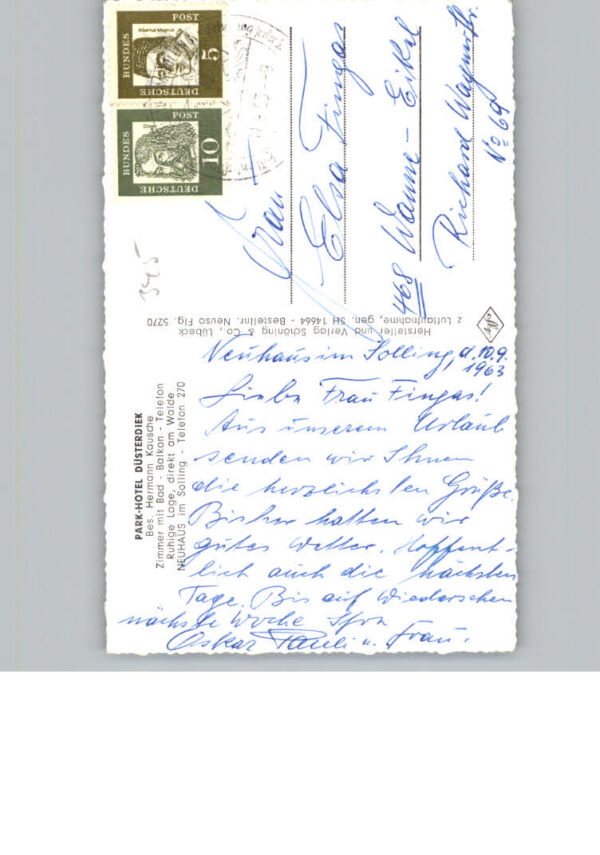 DEUTSCHE
BUNDES
POST
Albertus Magnus
5
DEUTSCHE
BUNDES
POST
Dürer
10
Frau
Elsa Fingas
468 Wanne-Eikel
Richard Wagnerstr.
No 69
345
Hersteller und Verlag Schöning & Co., Lübeck
z Luftaufnahme, gen. SH 14664 - Bestellnr. Neuso Flg. 5270
PARK-HOTEL DÜSTERDIEK
Bes. Hermann Kausche
Zimmer mit Bad - Balkon - Telefon
Ruhige Lage, direkt am Walde
NEUHAUS im Solling - Telefon 270
Neuhaus im Solling, d. 10.9.
1963
Liebe Frau Fingas!
Aus unserem Urlaub
senden wir Ihnen
die herzlichsten Grüße.
Bisher hatten wir
gutes Wetter. Hoffent-
lich auch die nächsten
Tage. Bis auf Wiedersehen
nächste Woche
Oskar Pauli u. Frau.